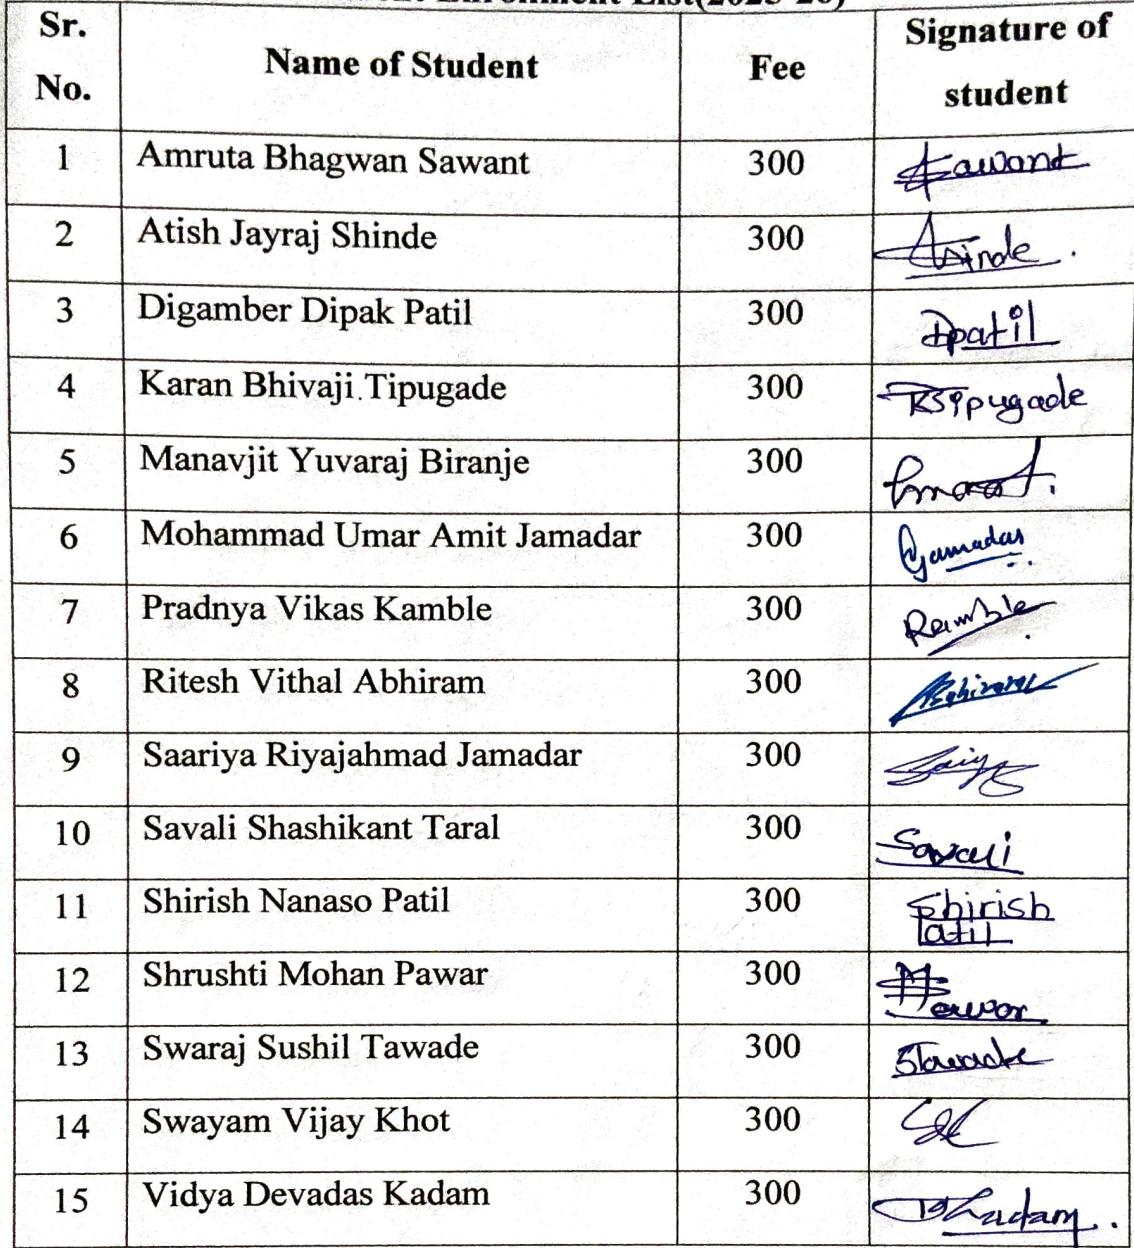 Enrollment List(2025-26)
Sr. No. Name of Student Fee Signature of student
1 Amruta Bhagwan Sawant 300 Sawant
2 Atish Jayraj Shinde 300
3 Digamber Dipak Patil 300 Dpatil
4 Karan Bhivaji Tipugade 300
5 Manavjit Yuvaraj Biranje 300
6 Mohammad Umar Amit Jamadar 300 Jamadar
7 Pradnya Vikas Kamble 300
8 Ritesh Vithal Abhiram 300
9 Saariya Riyajahmad Jamadar 300
10 Savali Shashikant Taral 300 Savali
11 Shirish Nanaso Patil 300 Shirish Patil
12 Shrushti Mohan Pawar 300
13 Swaraj Sushil Tawade 300 STawade
14 Swayam Vijay Khot 300
15 Vidya Devadas Kadam 300